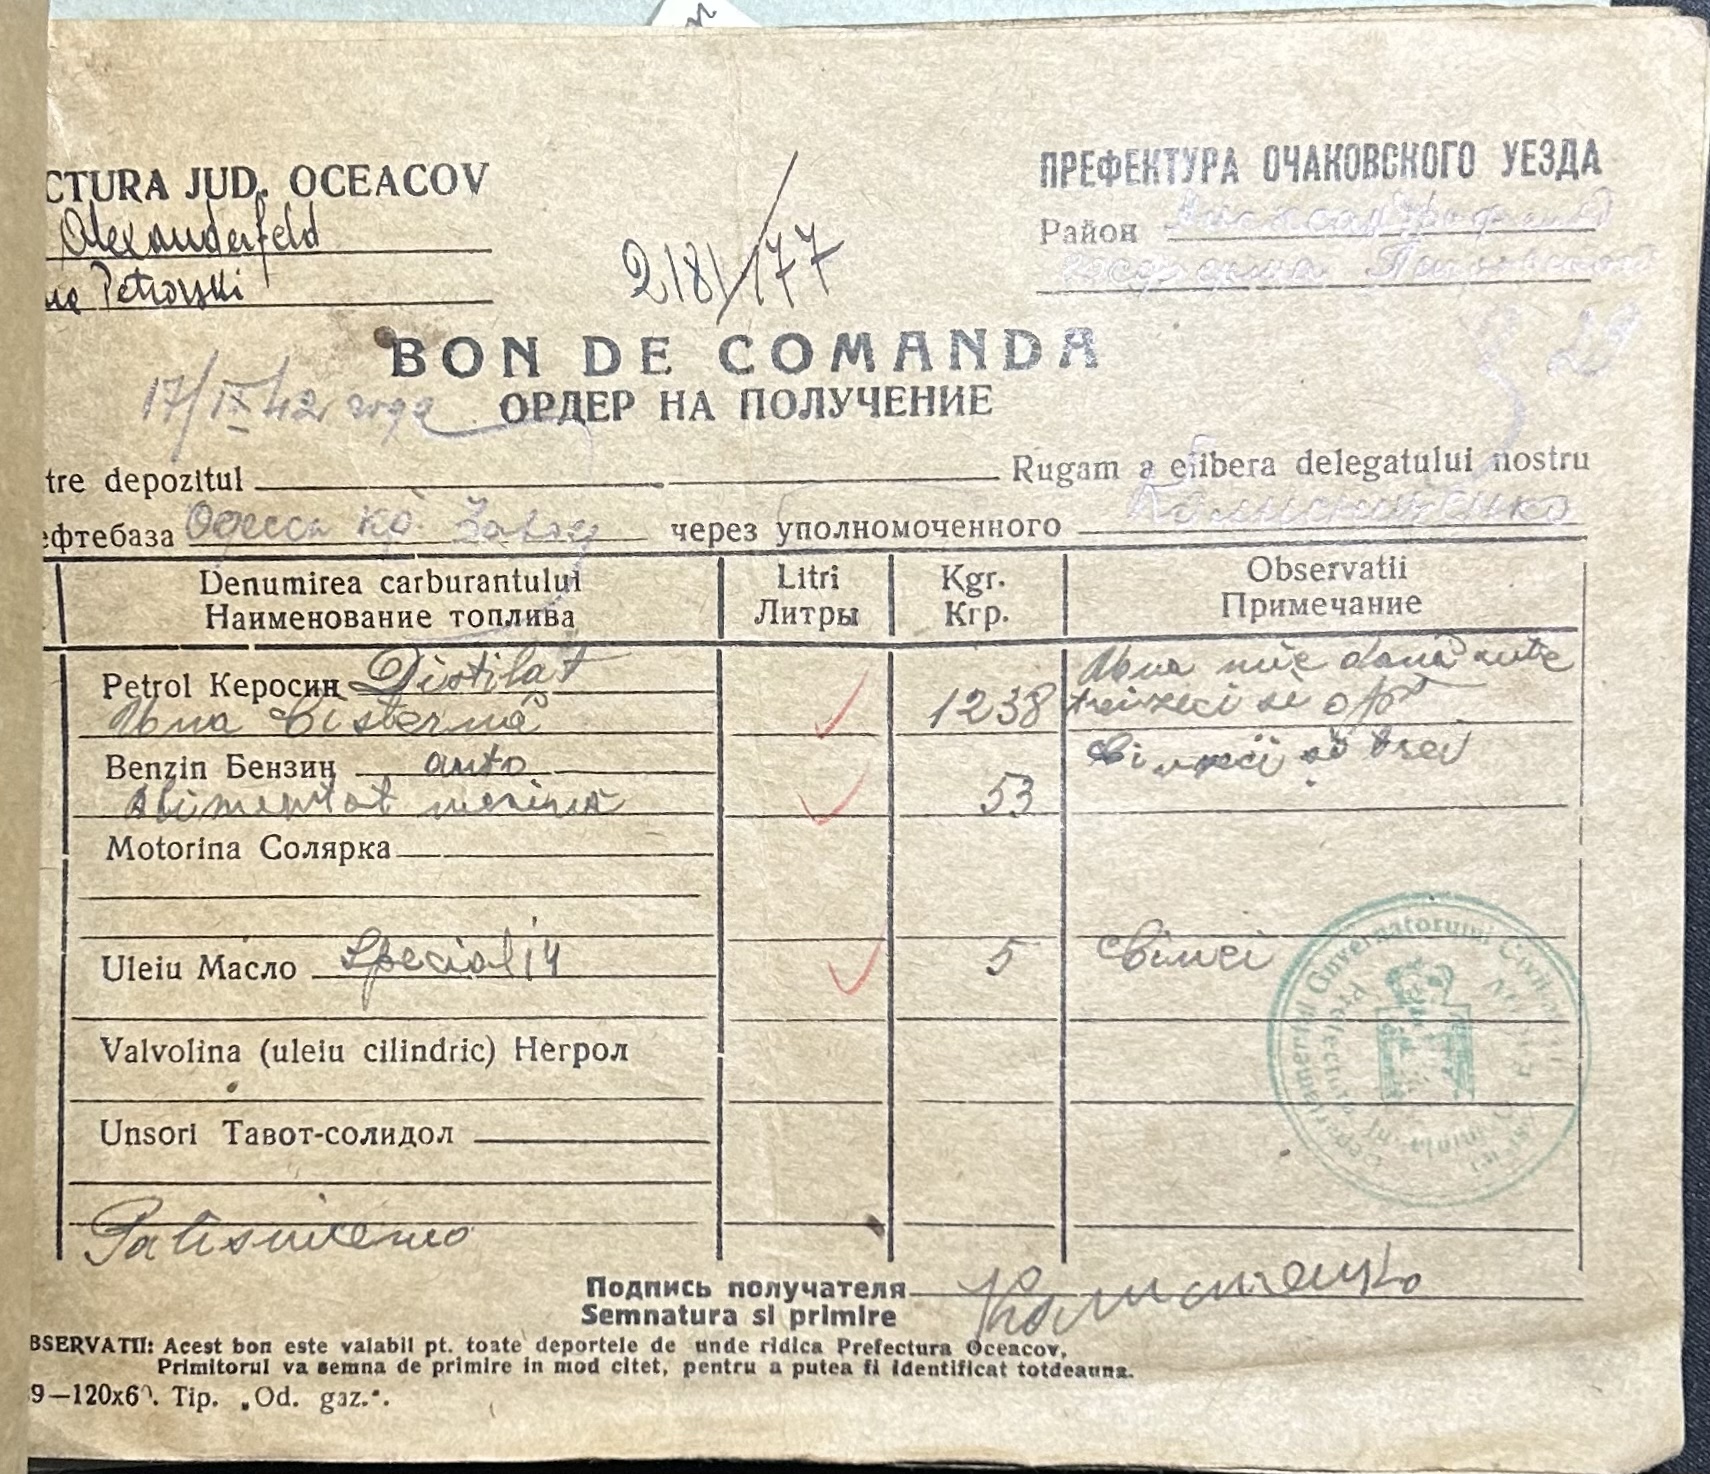 CTURA JUD. OCEACOV
ПРЕФЕКТУРА ОЧАКОВСКОГО УЕЗДА
Alexanderfeld
Район
Petrovski
218/177
29
BON DE COMANDA
17/IX 42 года
ОРДЕР НА ПОЛУЧЕНИЕ
tre depozitul Rugam a elibera delegatului nostru
ефтебаза Одесса через уполномоченного
Denumirea carburantului Litri Kgr. Observatii
Наименование топлива Литры Кгр. Примечание
Petrol Керосин Distilat Una mie două sute
Una Cisternă 1238 treizeci si opt
Benzin Бензин auto Cinzeci si trei
alimentat 53
Motorina Солярка
Uleiu Масло Special 5 Cinci
Valvolina (uleiu cilindric) Негрол
Unsori Тавот-солидол
Guvernatorului Civil
Prefectura
Подпись получателя
Semnatura si primire
BSERVATII: Acest bon este valabil pt. toate deportele de unde ridica Prefectura Oceacov,
Primitorul va semna de primire in mod citet, pentru a putea fi identificat totdeauna.
9—120x6 . Tip. „Od. gaz.".